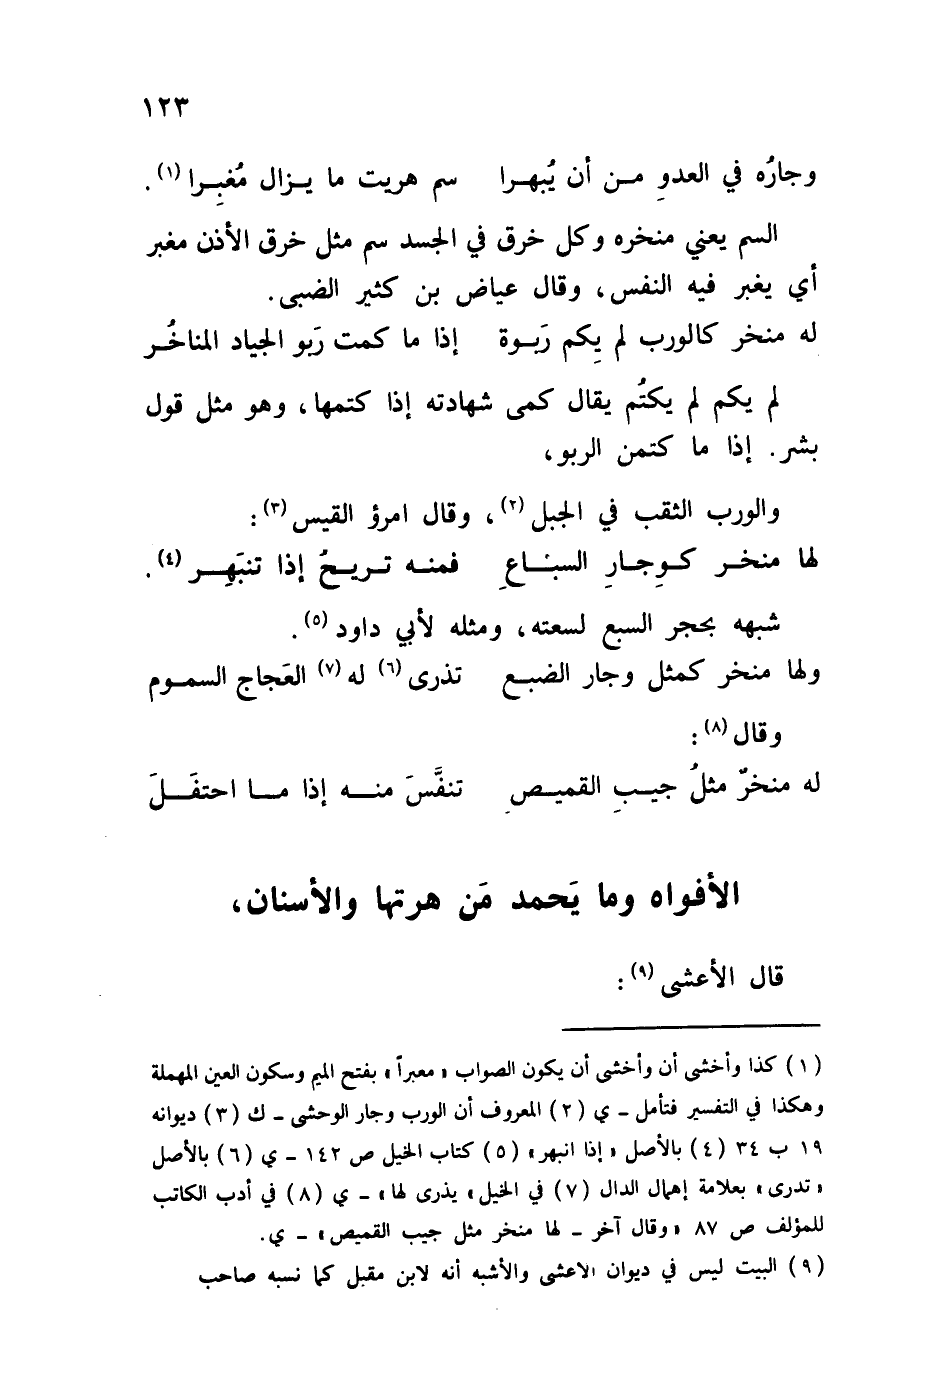 ١٢٣
وجارُه في العدوِ مـن أن يُبهـرا سم هريت ما يـزال مُغبِـرا (١).
السم يعني منخره وكل خرق في الجسد سم مثل خرق الأذن مغبر
أي يغبر فيه النفس، وقال عياض بن كثير الضبى.
له منخر كالورب لم يكمِ رَبـوة إذا ما كمت رَبو الجياد المناخُـر
لم يكم لم يكتُم يقال كمى شهادته إذا كتمها، وهو مثل قول
بشر. إذا ما كتمن الربو،
والورب الثقب في الجبل (٢)، وقال امرؤ القيس (٣):
لها منخـر كـوِجـارِ السبـاعِ فمنـه تـريـحُ إذا تنبَهِـر (٤).
شبهه بحجر السبع لسعته، ومثله لأبي داود (٥).
ولها منخر كمثل وجار الضبـع تذرى (٦) له (٧) العَجاج السمـوم
وقال (٨):
له منخرٌ مثلُ جيـبِ القميـصِ تنفَّسَ منـه إذا مـا احتفَـلَ
الأفواه وما يَحمد مَن هرتها والأسنان،
قال الأعشى (٩):
(١) كذا وأخشى أن وأخشى أن يكون الصواب « معبراً » بفتح الميم وسكون العين المهملة
وهكذا في التفسير فتأمل ـ ي (٢) المعروف أن الورب وجار الوحشى ـ ك (٣) ديوانه
١٩ ب ٣٤ (٤) بالأصل « إذا انبهر » (٥) كتاب الخيل ص ١٤٢ ـ ي (٦) بالأصل
« تدرى » بعلامة إهمال الدال (٧) في الخيل « يذرى لها » ـ ي (٨) في أدب الكاتب
للمؤلف ص ٨٧ « وقال آخر ـ لها منخر مثل جيب القميص » ـ ي.
(٩) البيت ليس في ديوان الاعشى والأشبه أنه لابن مقبل كما نسبه صاحب